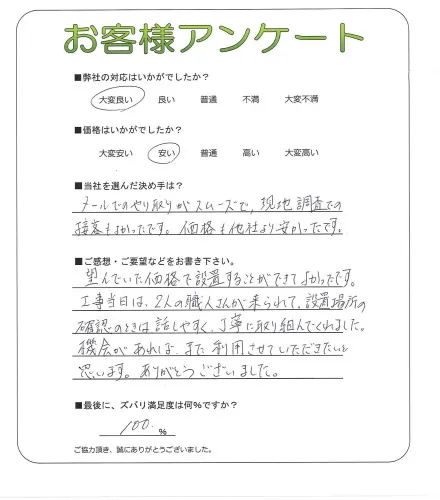 お客様アンケート
■弊社の対応はいかがでしたか？
大変良い 良い 普通 不満 大変不満
■価格はいかがでしたか？
大変安い 安い 普通 高い 大変高い
■当社を選んだ決め手は？
メールでのやり取りがスムーズで、現地調査での
接客もよかったです。価格も他社より安かったです。
■ご感想・ご要望などをお書き下さい。
望んでいた価格で設置することができてよかったです。
工事当日は、2人の職人さんが来られて、設置場所の
確認のときは話しやすく、丁寧に取り組んでくれました。
機会があれば、また利用させていただきたいと
思います。ありがとうございました。
■最後に、ズバリ満足度は何%ですか？
100. %
ご協力頂き、誠にありがとうございました。